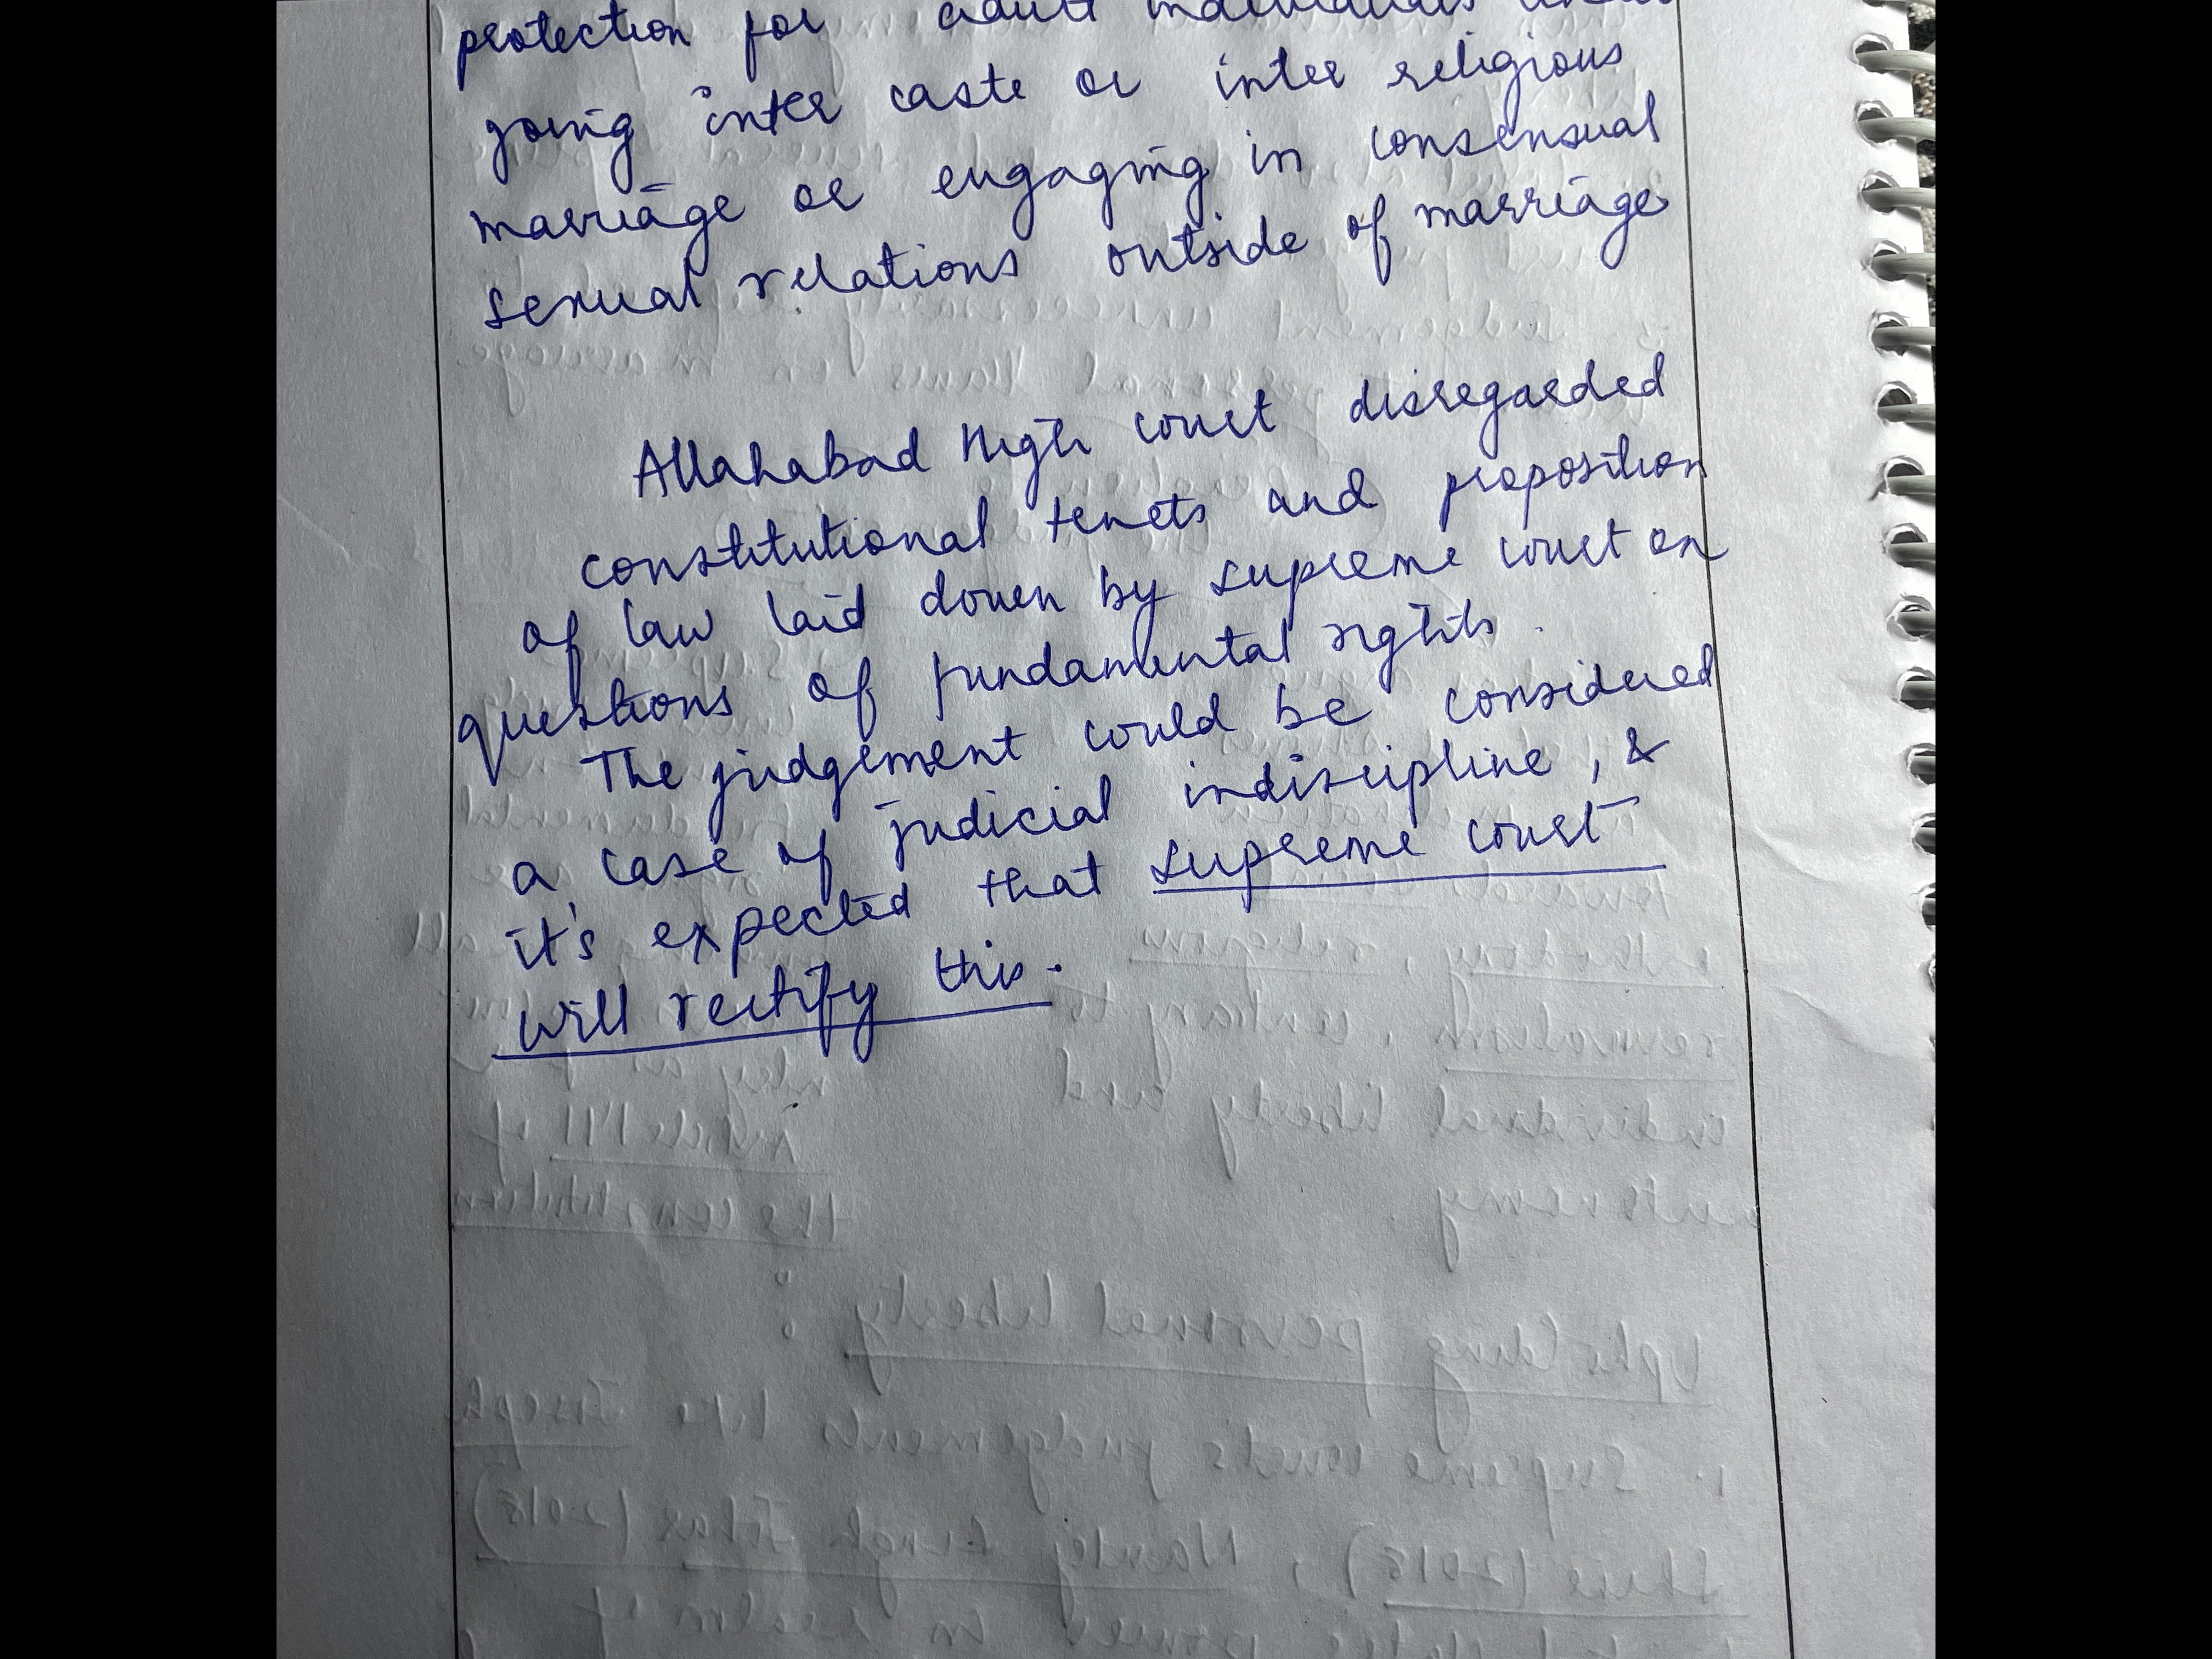 protection for adult individuals
going inter caste or inter religious
marriage or engaging in consensual
sexual relations outside of marriage
Allahabad High court disregarded
constitutional tenets and proposition
of law laid down by supreme court on
questions of fundamental rights.
The judgement could be considered
a case of judicial indiscipline, &
it's expected that supreme court
will rectify this.